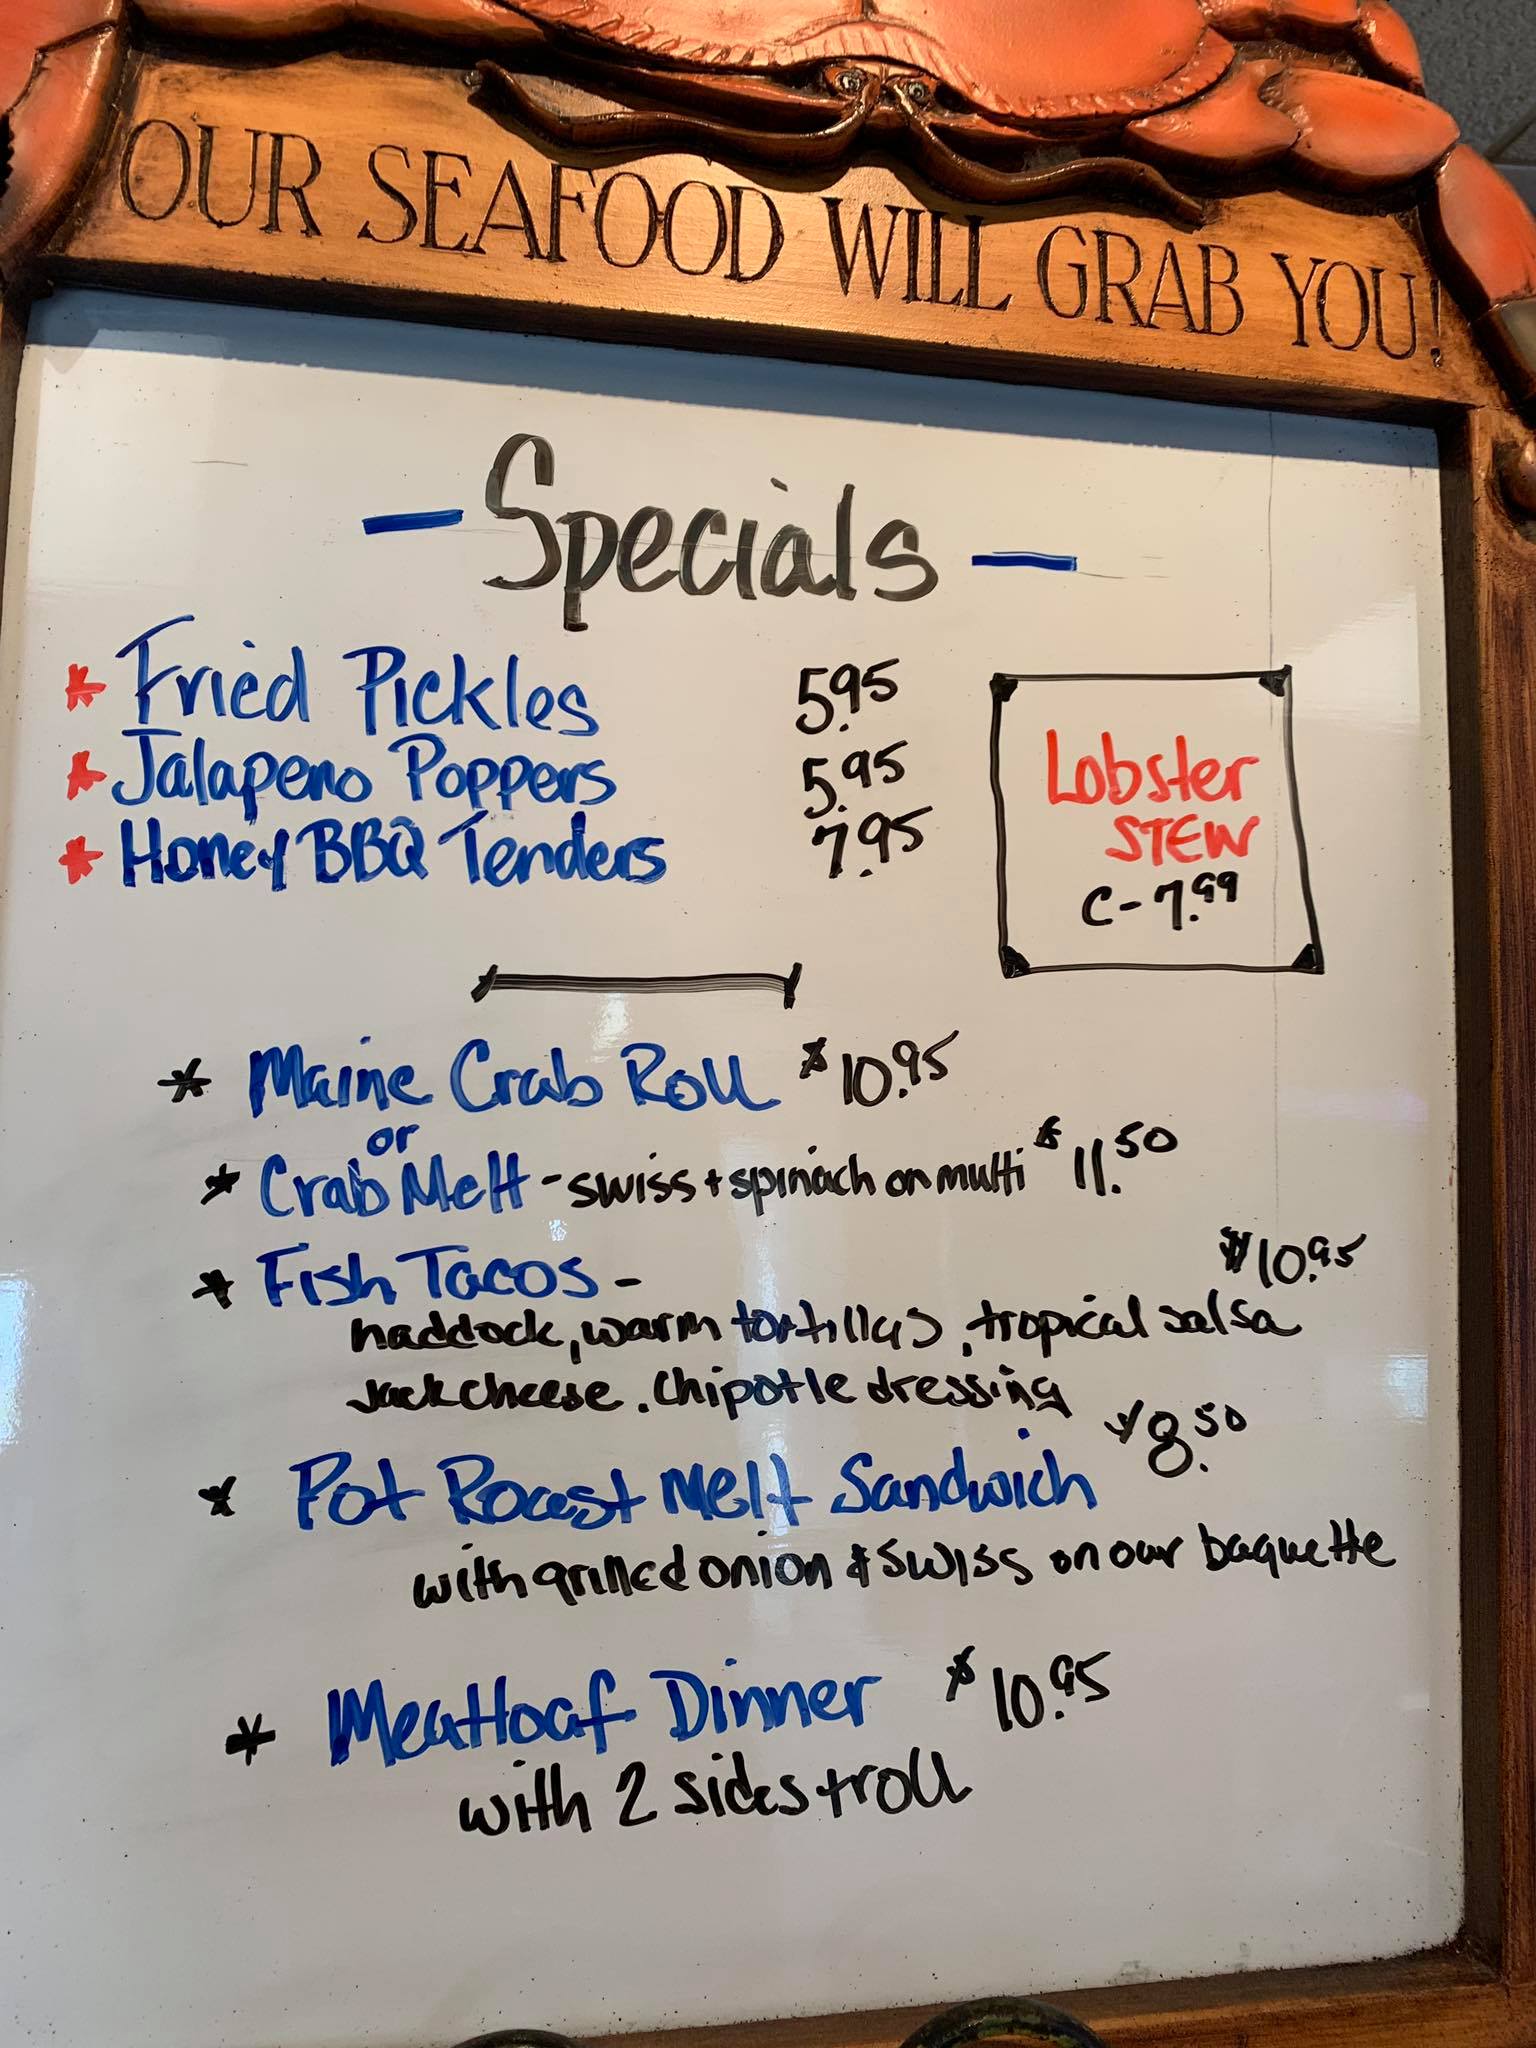 OUR SEAFOOD WILL GRAB YOU!
- Specials -
* Fried Pickles 5.95
* Jalapeno Poppers 5.95
* Honey BBQ Tenders 7.95
Lobster
STEW
C - 7.99
* Maine Crab Roll $10.95
or
* Crab Melt - swiss + spinach on multi $11.50
* Fish Tacos - $10.95
haddock, warm tortillas, tropical salsa
Jack cheese, chipotle dressing
* Pot Roast Melt Sandwich $8.50
with grilled onion & swiss on our baguette
* Meatloaf Dinner $10.95
with 2 sides + roll